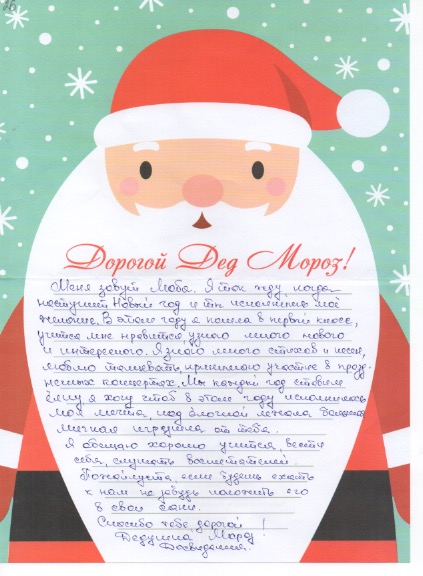 26
Дорогой Дед Мороз!
Меня зовут Люба. Я так жду, когда
наступит Новый год и ты исполнишь моё
желание. В этом году я пошла в первый класс,
учиться мне нравится, узнала много нового
и интересного. Я знаю много стихов и песен,
люблю танцевать, принимаю участие в празд-
ничных концертах. Мы каждый год ставим
ёлку я хочу чтоб в этом году исполнилась
моя мечта, под ёлочкой лежала большая
мягкая игрушка от тебя.
Я обещаю хорошо учится, вести
себя, слушать воспитателей.
Пожайлуста, если будешь ехать
к нам не забудь положить его
в свои сани.
Спасибо тебе, дорогой
Дедушка Мороз!
Досвидания.